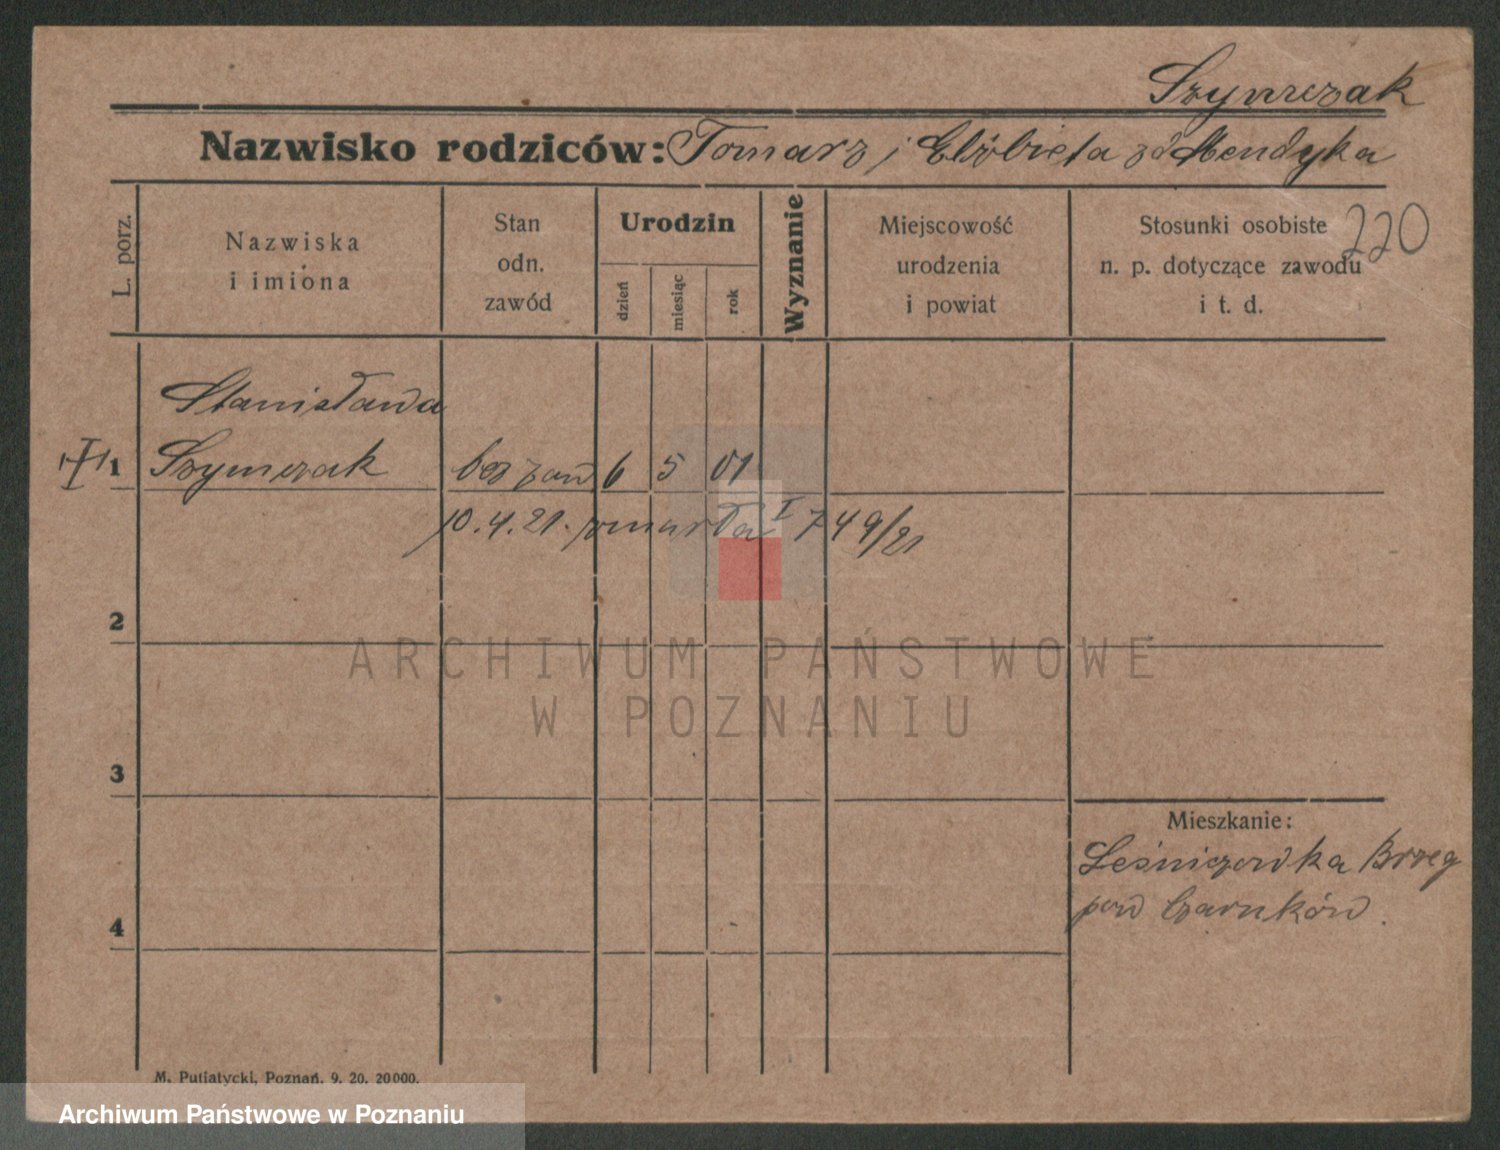 Szymczak
Nazwisko rodziców: Tomasz i Elżbieta zd Mendyka
220
L. porz.
Nazwiska
i imiona
Stan
odn.
zawód
Urodzin
dzień
miesiąc
rok
Wyznanie
Miejscowość
urodzenia
i powiat
Stosunki osobiste
n. p. dotyczące zawodu
i t. d.
Stanisława
1 Szymczak bez zaw 6 5 01
10.4.21. zmarła I 749/21
2
3
4
Mieszkanie:
Leśniczówka Brzeg
pow Czarnków.
M. Putiatycki, Poznań. 9. 20. 20000.
ARCHIWUM PAŃSTWOWE
W POZNANIU
Archiwum Państwowe w Poznaniu